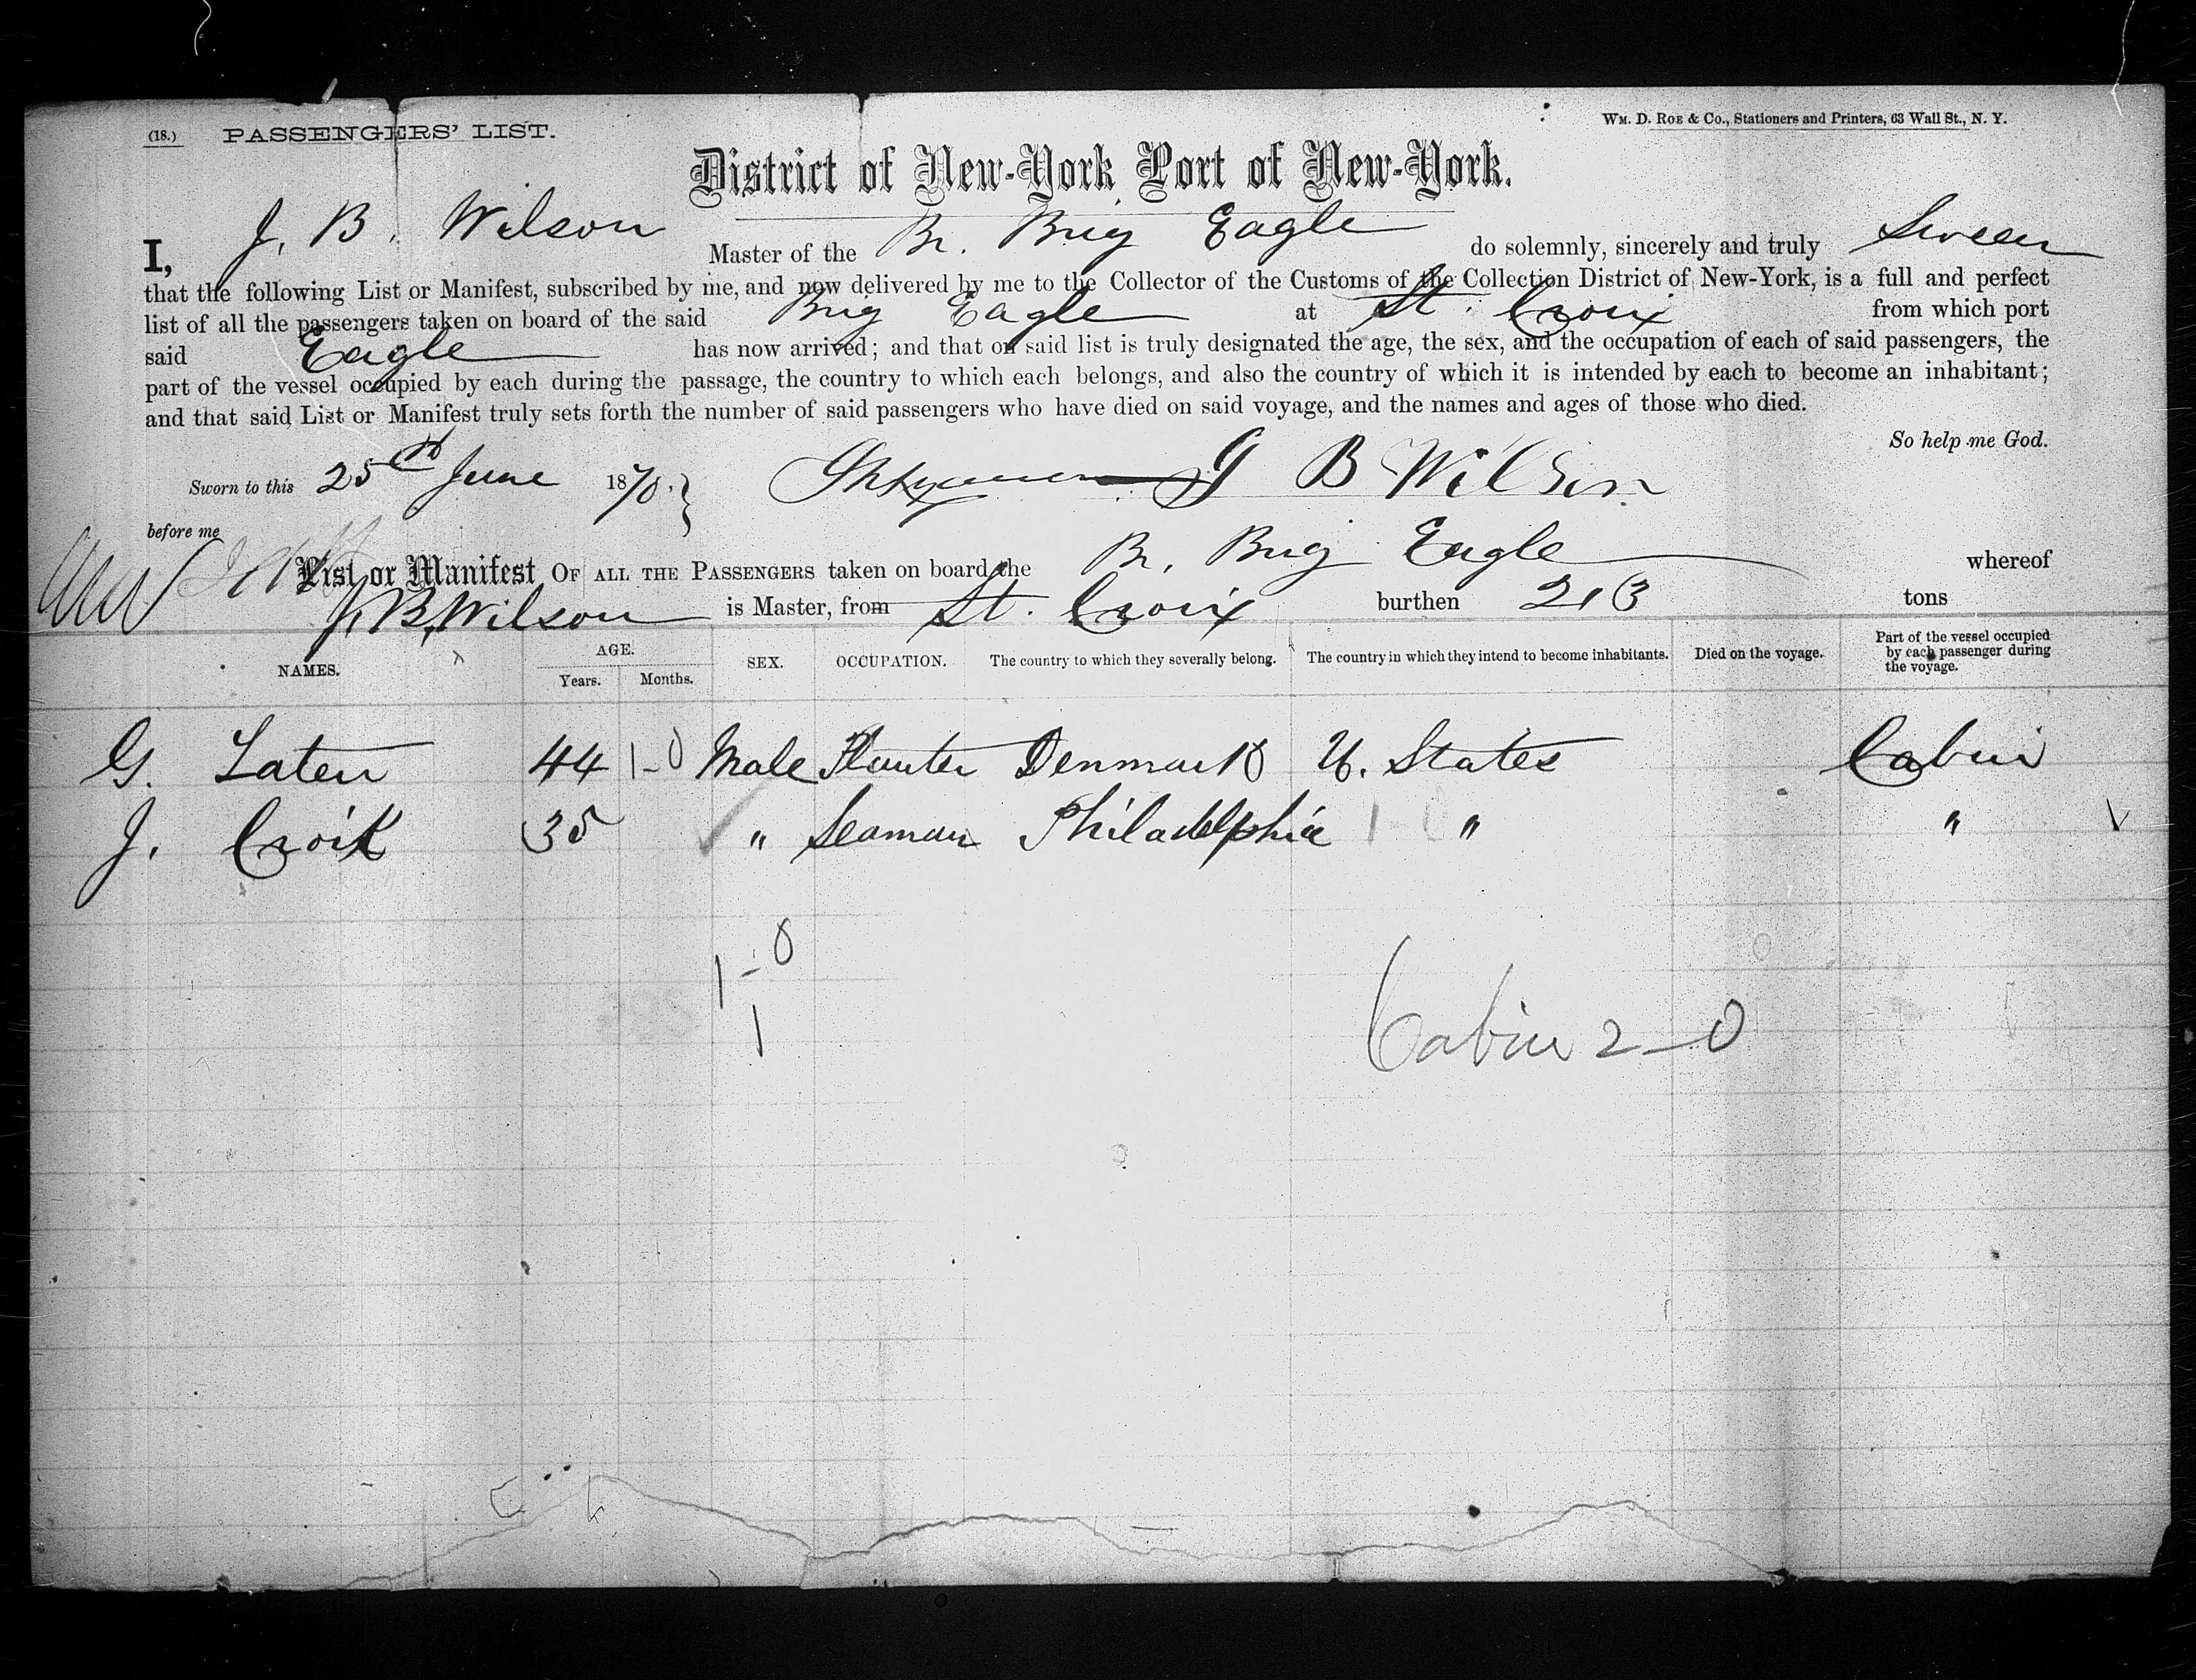 (18.) PASSENGERS' LIST.
WM. D. ROE & CO., Stationers and Printers, 63 Wall St., N. Y.
District of New-York Port of New-York.
I, J. B. Wilson Master of the Br. Brig Eagle do solemnly, sincerely and truly Swear
that the following List or Manifest, subscribed by me, and now delivered by me to the Collector of the Customs of the Collection District of New-York, is a full and perfect
list of all the passengers taken on board of the said Brig Eagle at St. Croix from which port
said Eagle has now arrived; and that on said list is truly designated the age, the sex, and the occupation of each of said passengers, the
part of the vessel occupied by each during the passage, the country to which each belongs, and also the country of which it is intended by each to become an inhabitant;
and that said List or Manifest truly sets forth the number of said passengers who have died on said voyage, and the names and ages of those who died.
So help me God.
Sworn to this 25th June 1870. J B Wilson
before me
List or Manifest OF ALL THE PASSENGERS taken on board the Br. Brig Eagle whereof
J. B. Wilson is Master, from St. Croix burthen 213 tons
NAMES. AGE. Years. Months. SEX. OCCUPATION. The country to which they severally belong. The country in which they intend to become inhabitants. Died on the voyage. Part of the vessel occupied by each passenger during the voyage.
G. Laten 44 1-0 Male Planter Denmark U. States Cabin
J. Croik 35 " Seaman Philadelphia 1 0 " "
1-0
1
Cabin 2-0